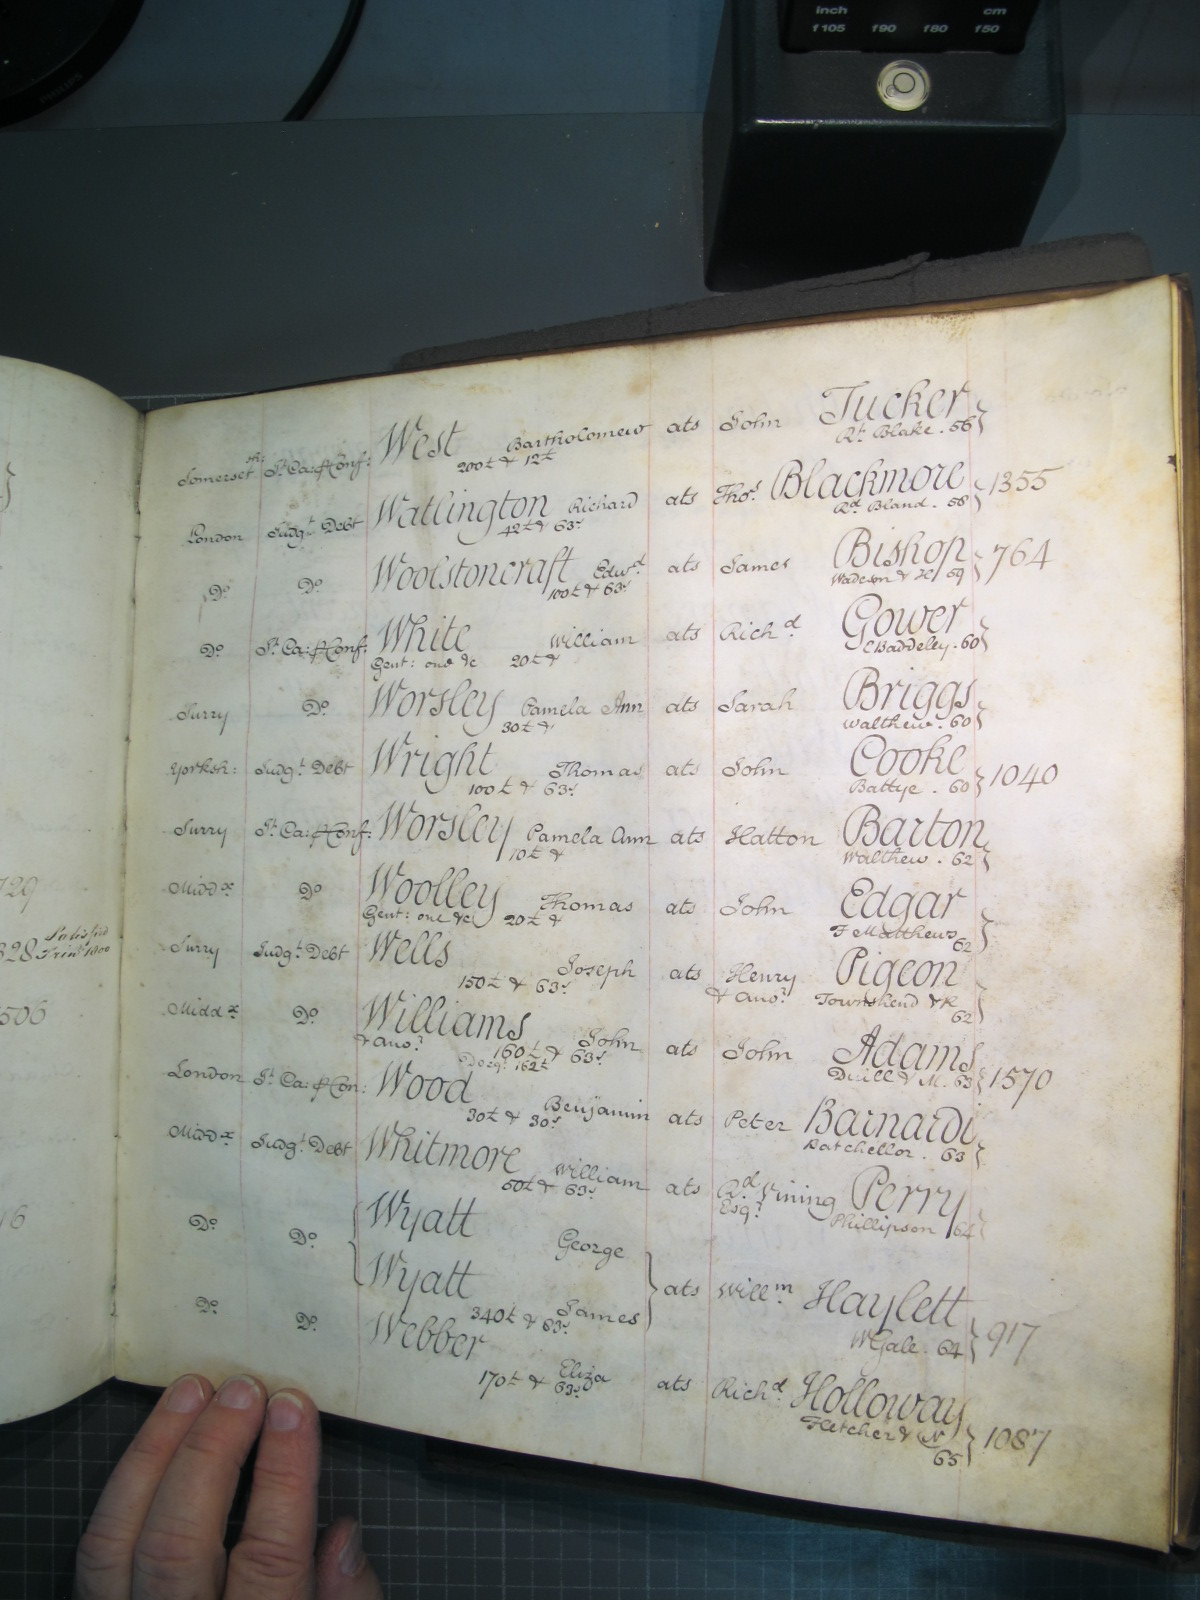 inch cm
f105 f90 f80 f50
PHILIPS
Somersetsh: St. Ca: & Conf: West Bartholomew ats John Tucker
200£ & 12£ Rt. Blake. 56
London Judgt. Debt Watlington Richard ats Thos. Blackmore 1355
42£ & 63s Rd. Bland. 58
Do. Do. Woolstoncraft Edwd. ats James Bishop 764
100£ & 63s Wadeson & H 59
Do. St. Ca: & Conf: White William ats Richd. Gower
Gent: one &c 20£ & C Baddeley. 60
Surry Do. Worsley Pamela Ann ats Sarah Briggs
30£ & Walthew. 60
Yorksh: Judgt. Debt Wright Thomas ats John Cooke 1040
100£ & 63s Battye. 60
Surry St. Ca: & Conf: Worsley Pamela Ann ats Hatton Barton
10£ & Walthew. 62
Middx. Do. Woolley Thomas ats John Edgar
Gent: one &c 20£ & F Matthews
62
Surry Judgt. Debt Wells Joseph ats Henry Pigeon
150£ & 63s & Anor. Townshend & R
62
Middx. Do. Williams John ats John Adams 1570
& Anor. 160£ & 63s M. 63
162£
London St. Ca: & Con: Wood Benjamin ats Peter Barnardi
30£ & 30s Batchellor. 63
Middx. Judgt. Debt Whitmore William ats Rd. Vining Perry
50£ & 63s Esqr. Phillipson 64
Do. Do. Wyatt George
Wyatt James ats Willm. Haylett 917
340£ & 63s W Gale. 64
Do. Do. Webber Eliza ats Richd. Holloway 1087
170£ & 63s Fletcher & W
65
729
328 Satisfied
1800
506
16